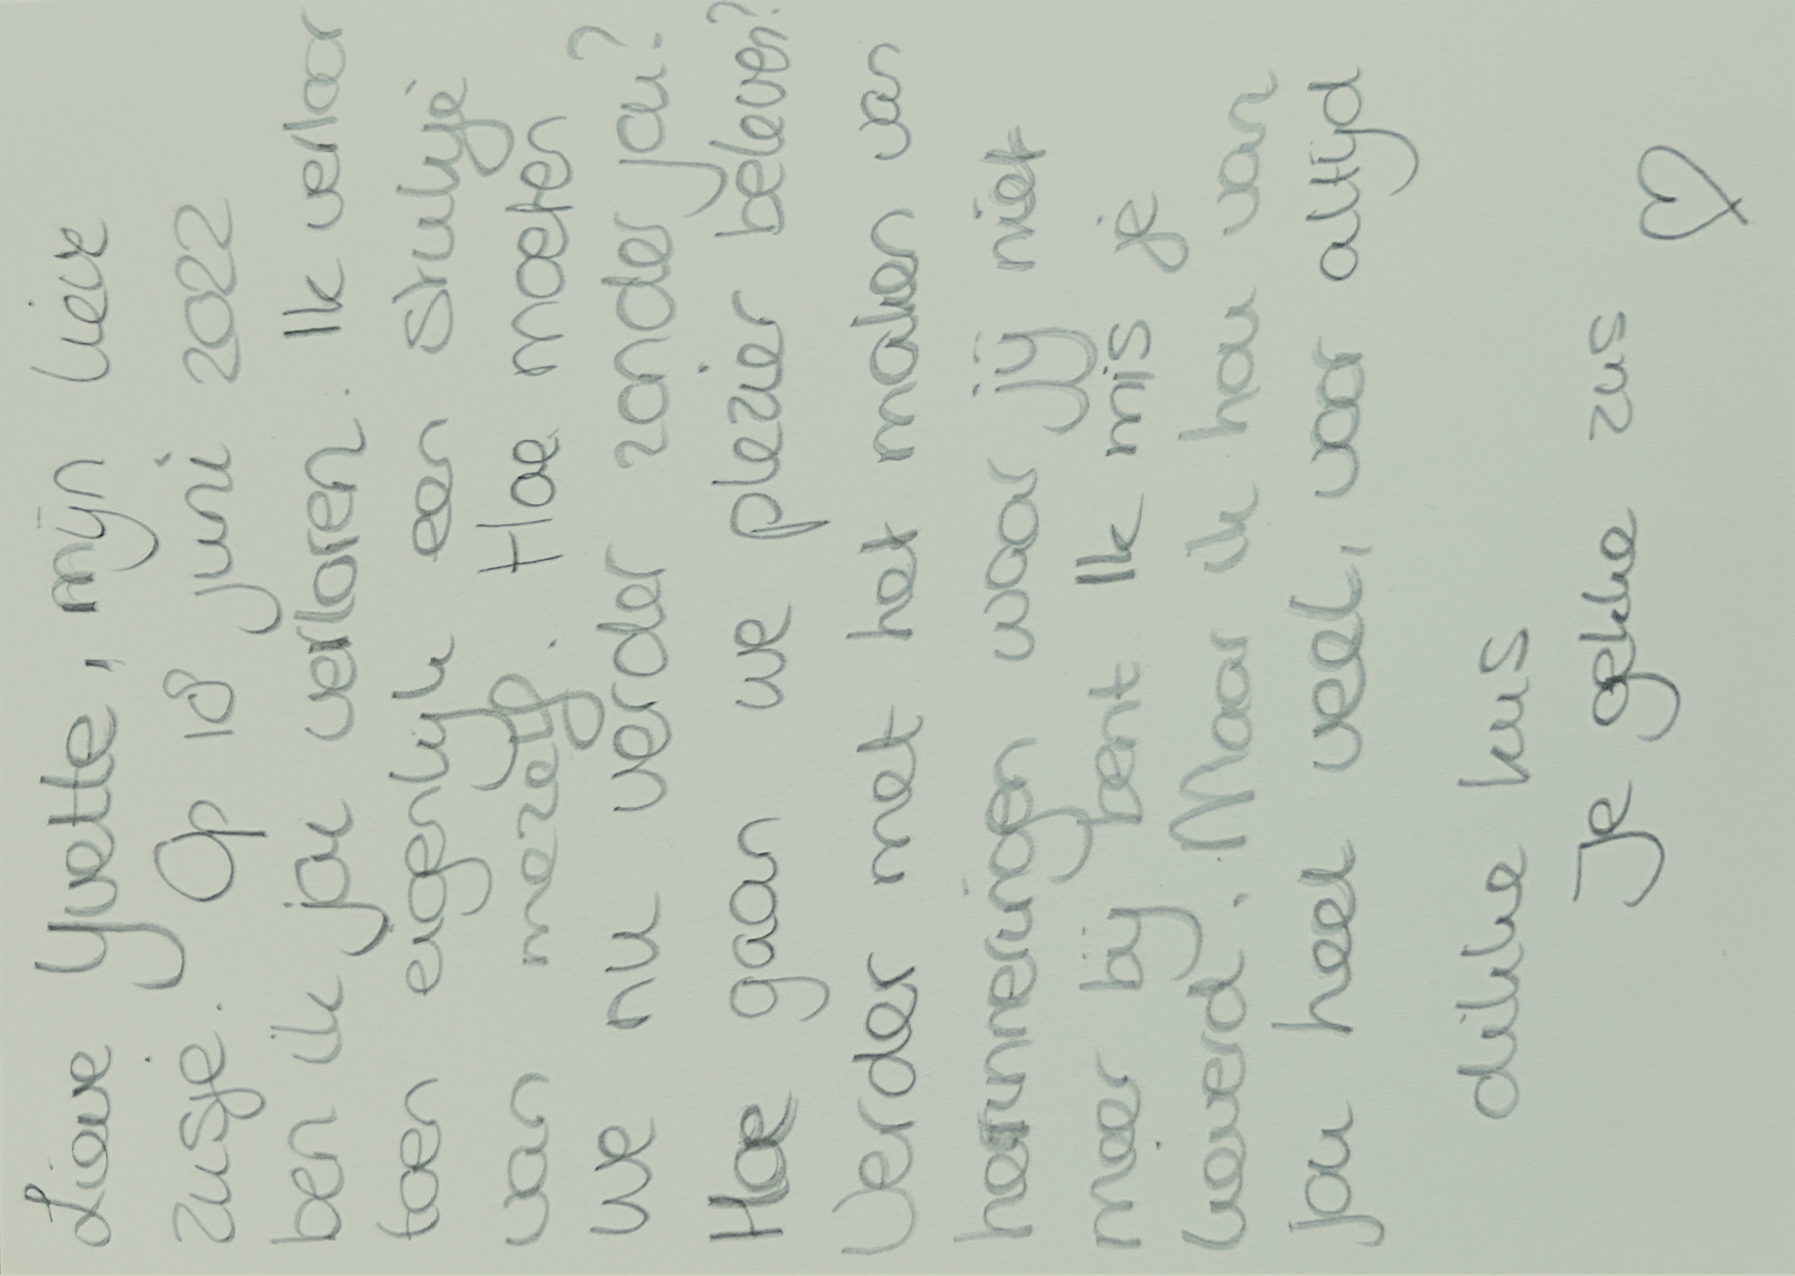 Lieve Yvette, mijn lieve
zusje. Op 18 juni 2022
ben ik jou verloren. Ik verloor
toen eigenlijk een stukje
van mezelf. Hoe moeten
we nu verder zonder jou?
Hoe gaan we plezier beleven?
Verder met het maken van
herinneringen waar jij niet
meer bij bent. Ik mis je
lieverd. Maar ik hou van
jou heel veel, voor altijd
dikke kus
Je gekke zus